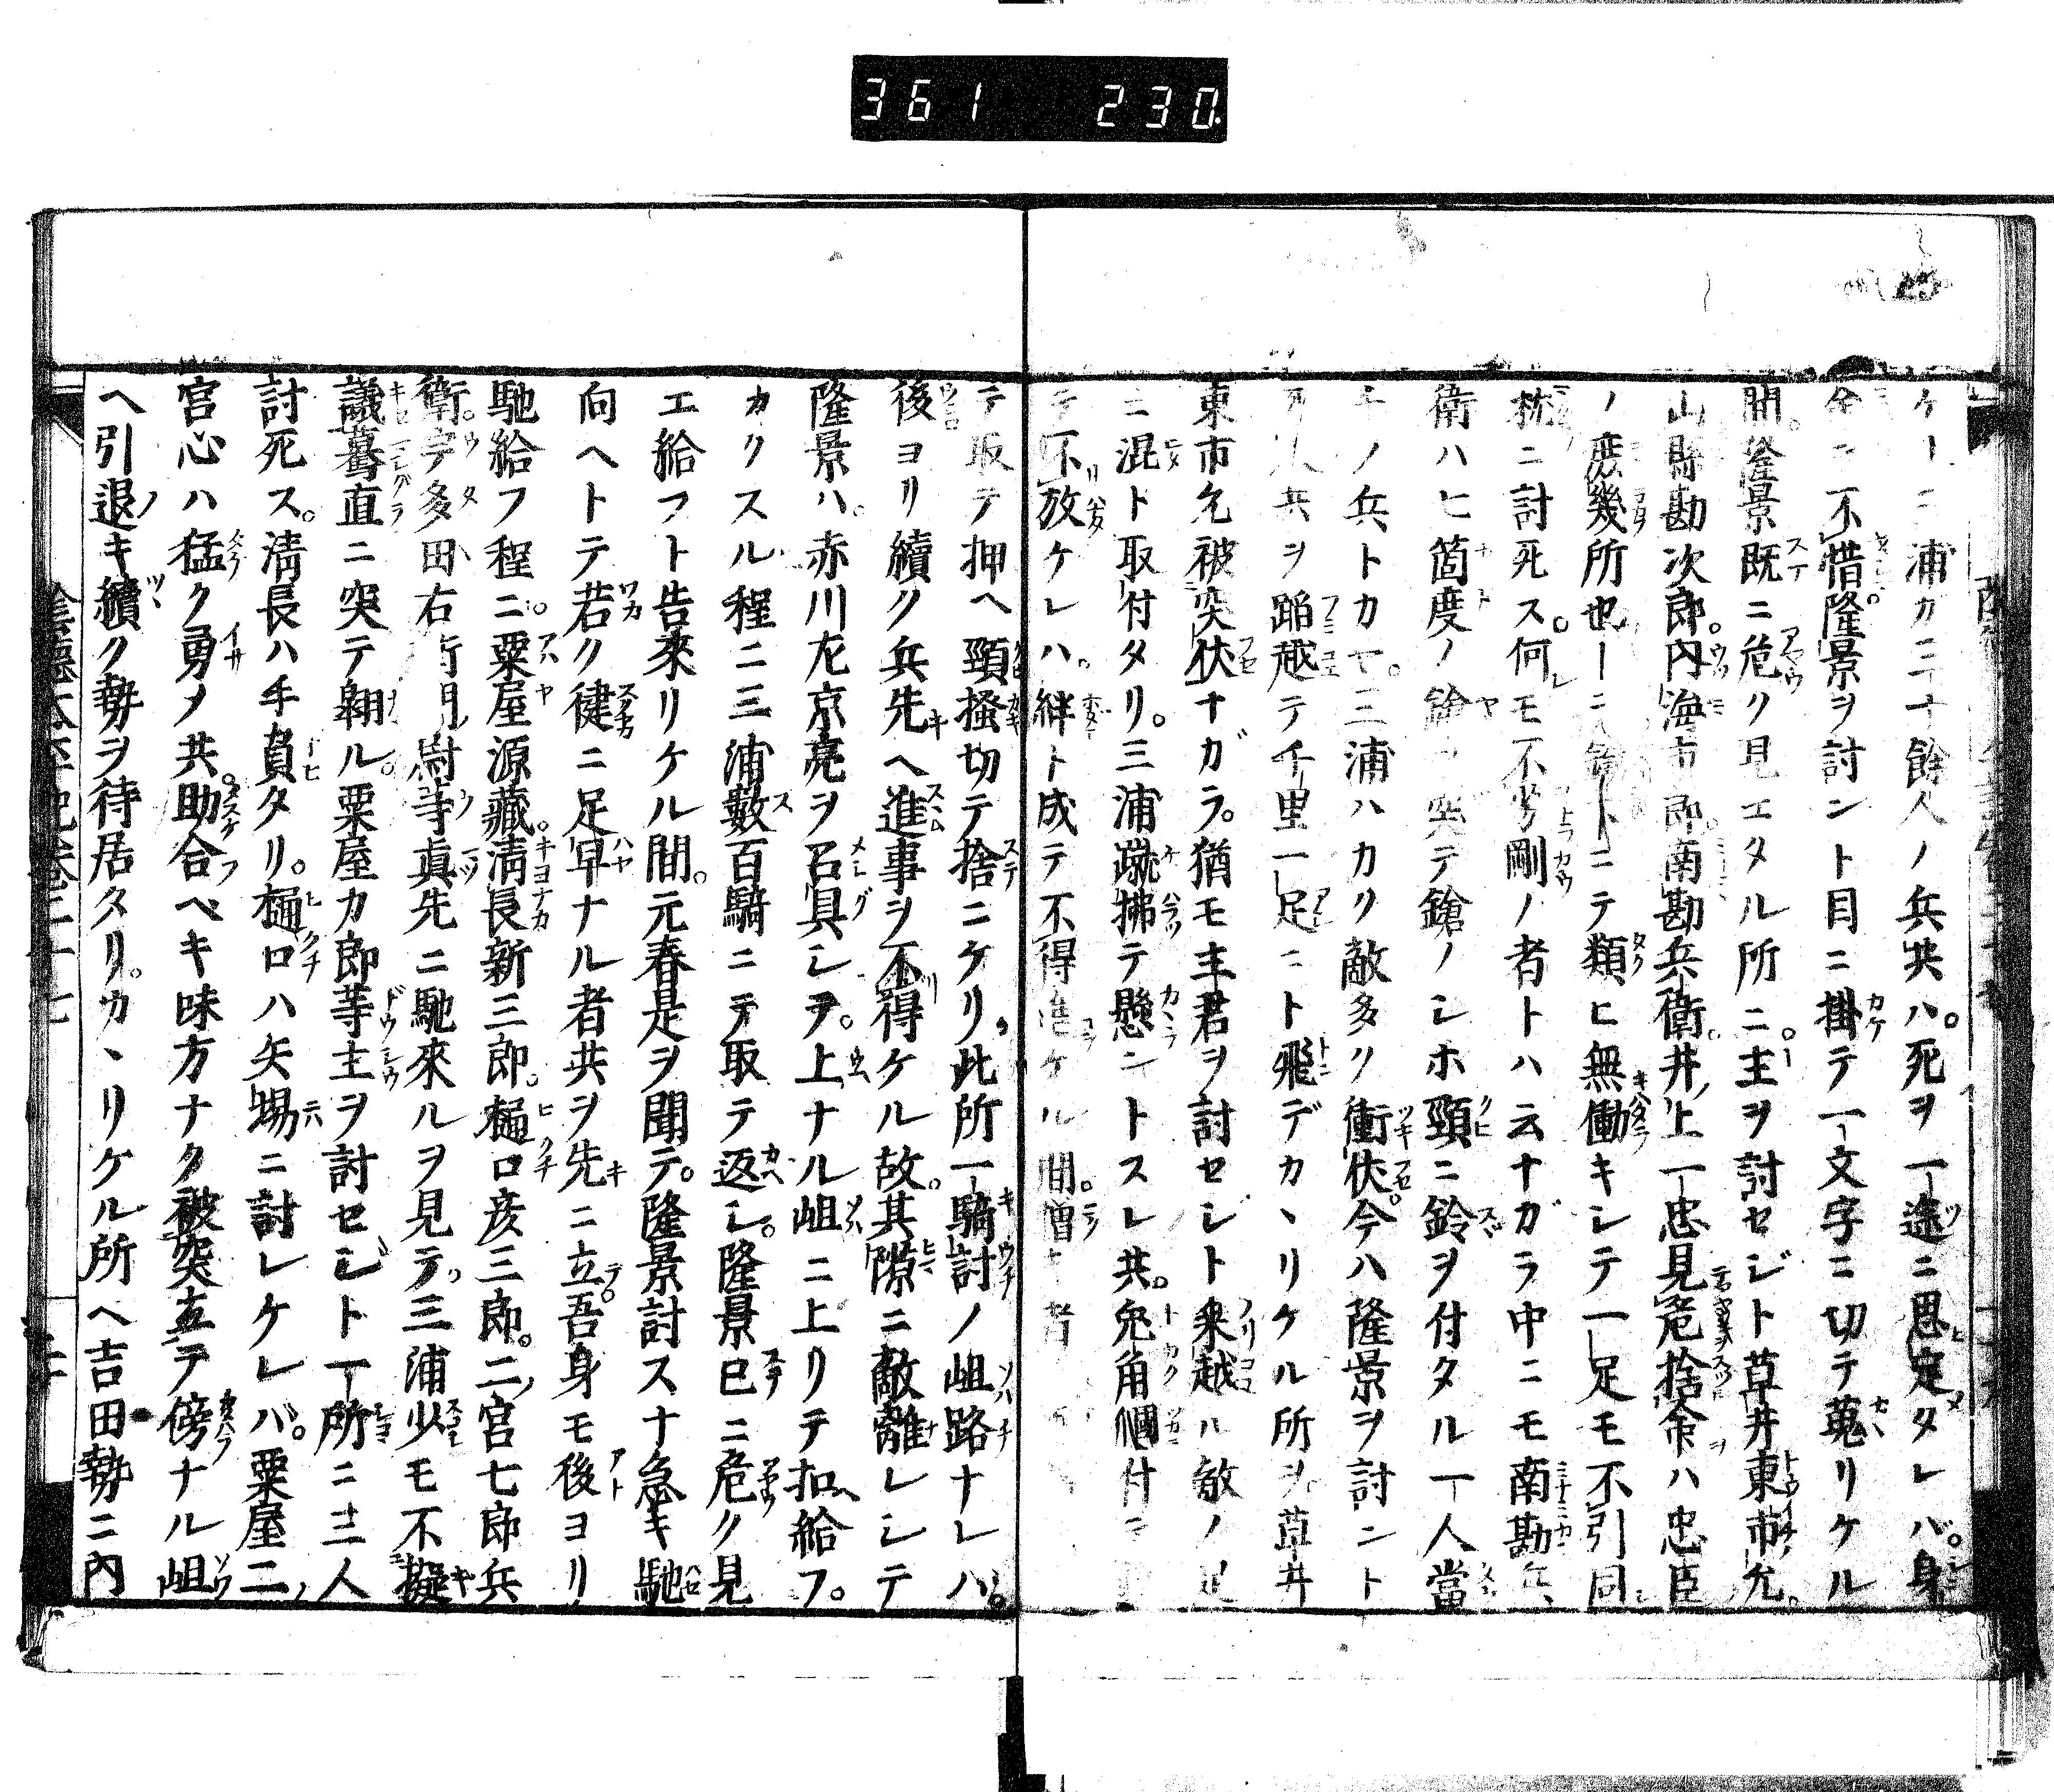 361 230.
ケ一ニ浦カ二十餘人ノ兵共ハ。死ヲ一途ニ思定タレバ。身
命ニ不惜。隆景ヲ討ント目ニ掛テ一文字ニ切テ蒐リケル
間。隆景既ニ危ク見エタル所ニ。主ヲ討セジト草井東市允。
山縣勘次郎。内海市郎南勘兵衛。井上一忠見危捨命ハ忠臣
ノ庶幾所也ニテ類ヒ無働キシテ一足モ不引同
枕ニ討死ス。何モ不劣剛ノ者トハ云ナガラ中ニモ南勘兵
衛ハヒ箇度ノ鎗ヲ突テ鎗ノシホ頸ニ鈴ヲ付タル一人當
千ノ兵トカヤ。三浦ハカク敵多ク衝伏。今ハ隆景ヲ討ント
死人兵ヲ蹈越テ千里一足ニト飛デカヽリケル所ヲ草井
東市允被突伏ナガラ。猶モ主君ヲ討セジト乘越ル敵ノ足
ニ混ト取付タリ。三浦蹴拂テ懸ントスレ共。兎角個付テ
テ不放ケレハ。絆ト成テ不得進ケル間。憎キ者
テ取テ押ヘ頸搔切テ捨ニケリ。此所一騎討ノ岨路ナレハ。
後ヨリ續ク兵先ヘ進事ヲ不得ケル故。其隙ニ敵離レシテ
隆景ハ。赤川左京亮ヲ召具シヲ。上ナル岨ニ上リテ扣給フ。
カクスル程ニ三浦數百騎ニテ取テ返シ。隆景巳ニ危ク見
エ給フト告來リケル間。元春是ヲ聞テ。隆景討スナ急キ馳
向ヘトテ若ク健ニ足早ナル者共ヲ先ニ立。吾身モ後ヨリ
馳給フ程ニ。粟屋源藏。淸長新三郎。樋口彦三郎。二ノ宮七郎兵
衛。宇多田右衛門尉等眞先ニ馳來ルヲ見テ。三浦少モ不擬
議驀直ニ突テ翔ル。粟屋カ郎等主ヲ討セジト一所ニ十二人
討死ス。淸長ハ手負タリ。樋口ハ矢場ニ討レケレバ。粟屋二ノ
宮心ハ猛ク勇メ共。助合ベキ味方ナク被突立テ傍ナル岨
ヘ引退キ續ク勢ヲ待居タリ。カヽリケル所ヘ吉田勢ニ内
陰德太平記卷三十七